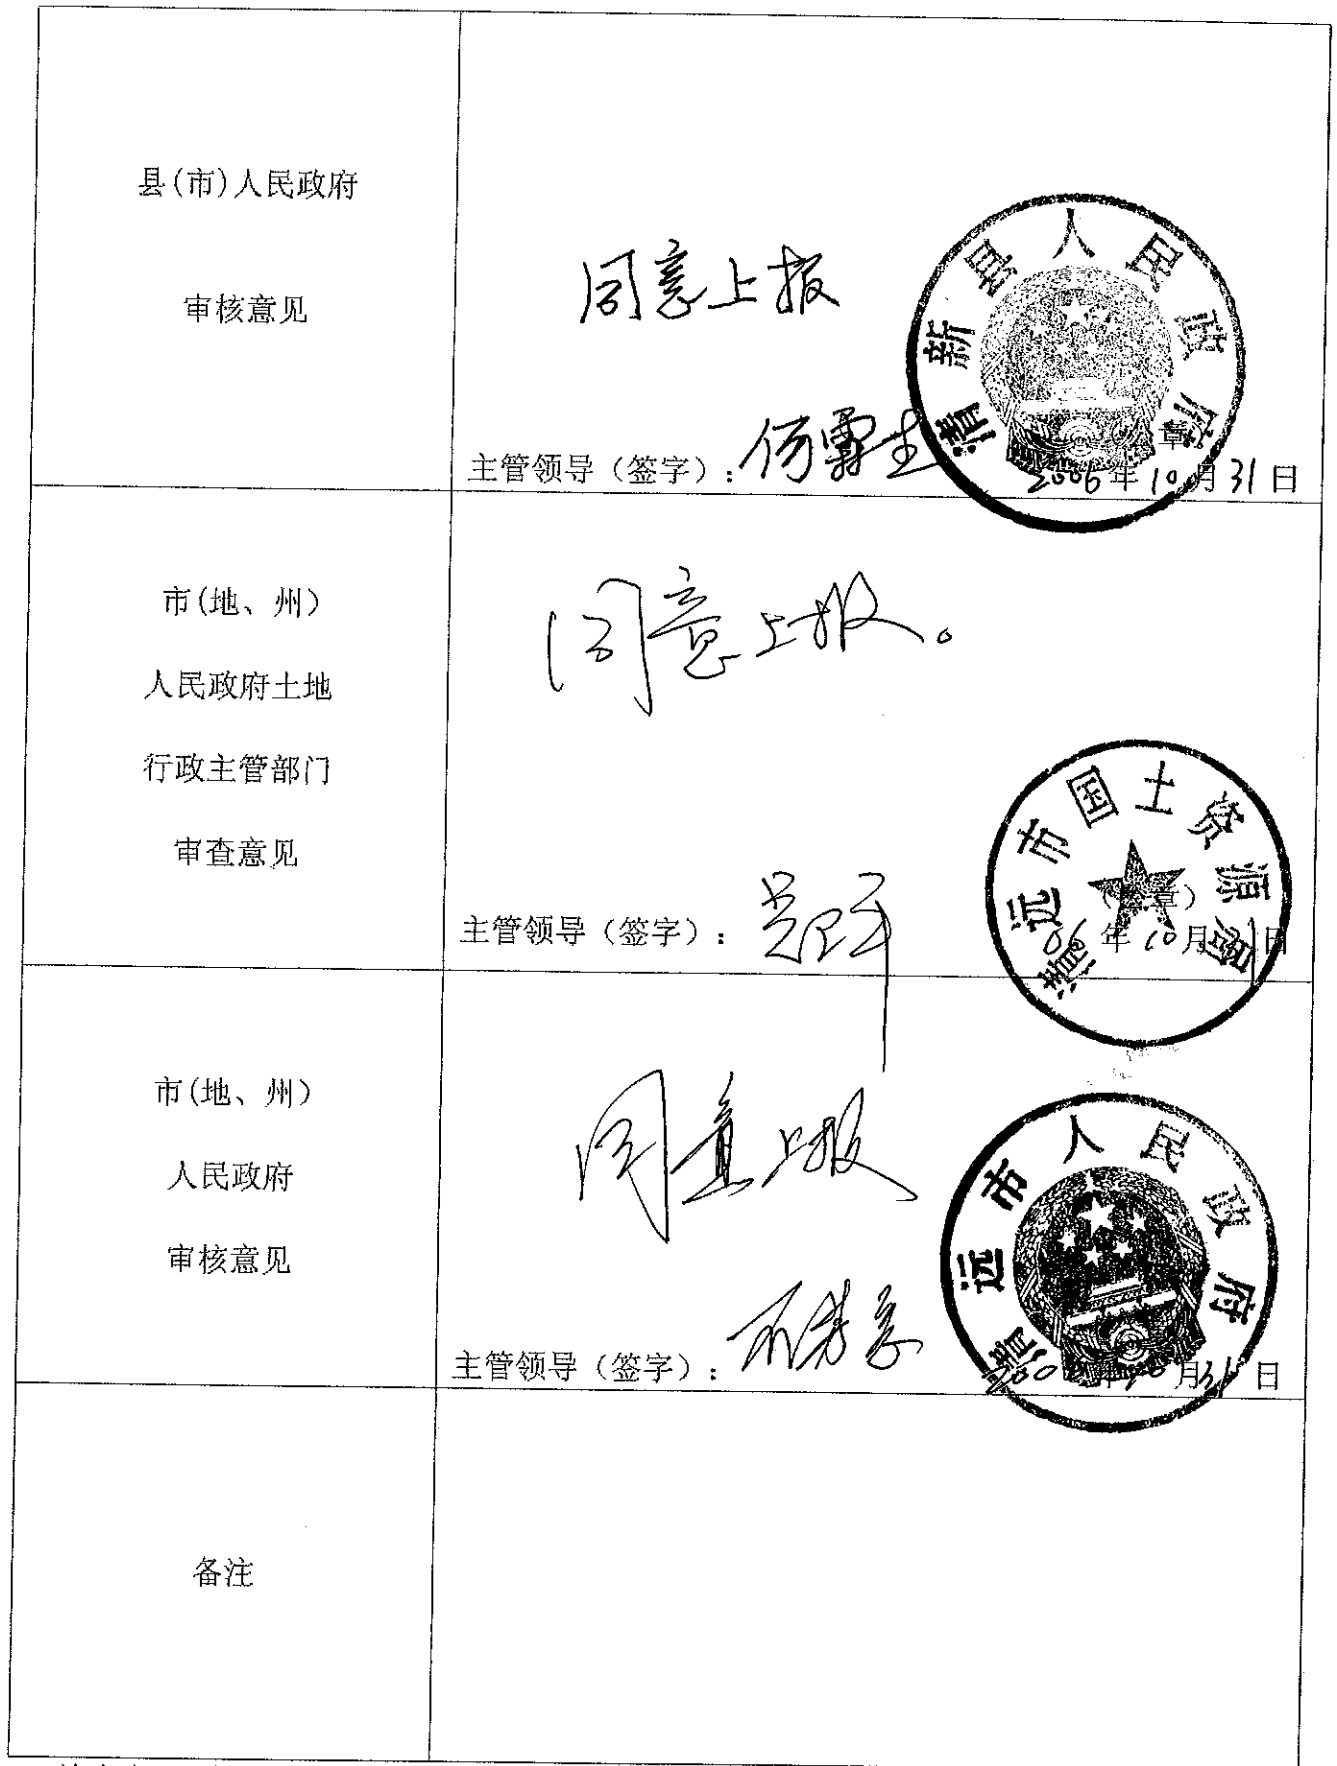 县(市)人民政府
审核意见
同意上报
清新县人民政府
章
主管领导（签字）：
2006年10月31日
市(地、州)
人民政府土地
行政主管部门
审查意见
同意上报。
清远市国土资源局
章）
主管领导（签字）：
06年10月31日
市(地、州)
人民政府
审核意见
同意上报
清远市人民政府
主管领导（签字）：
月31日
备注